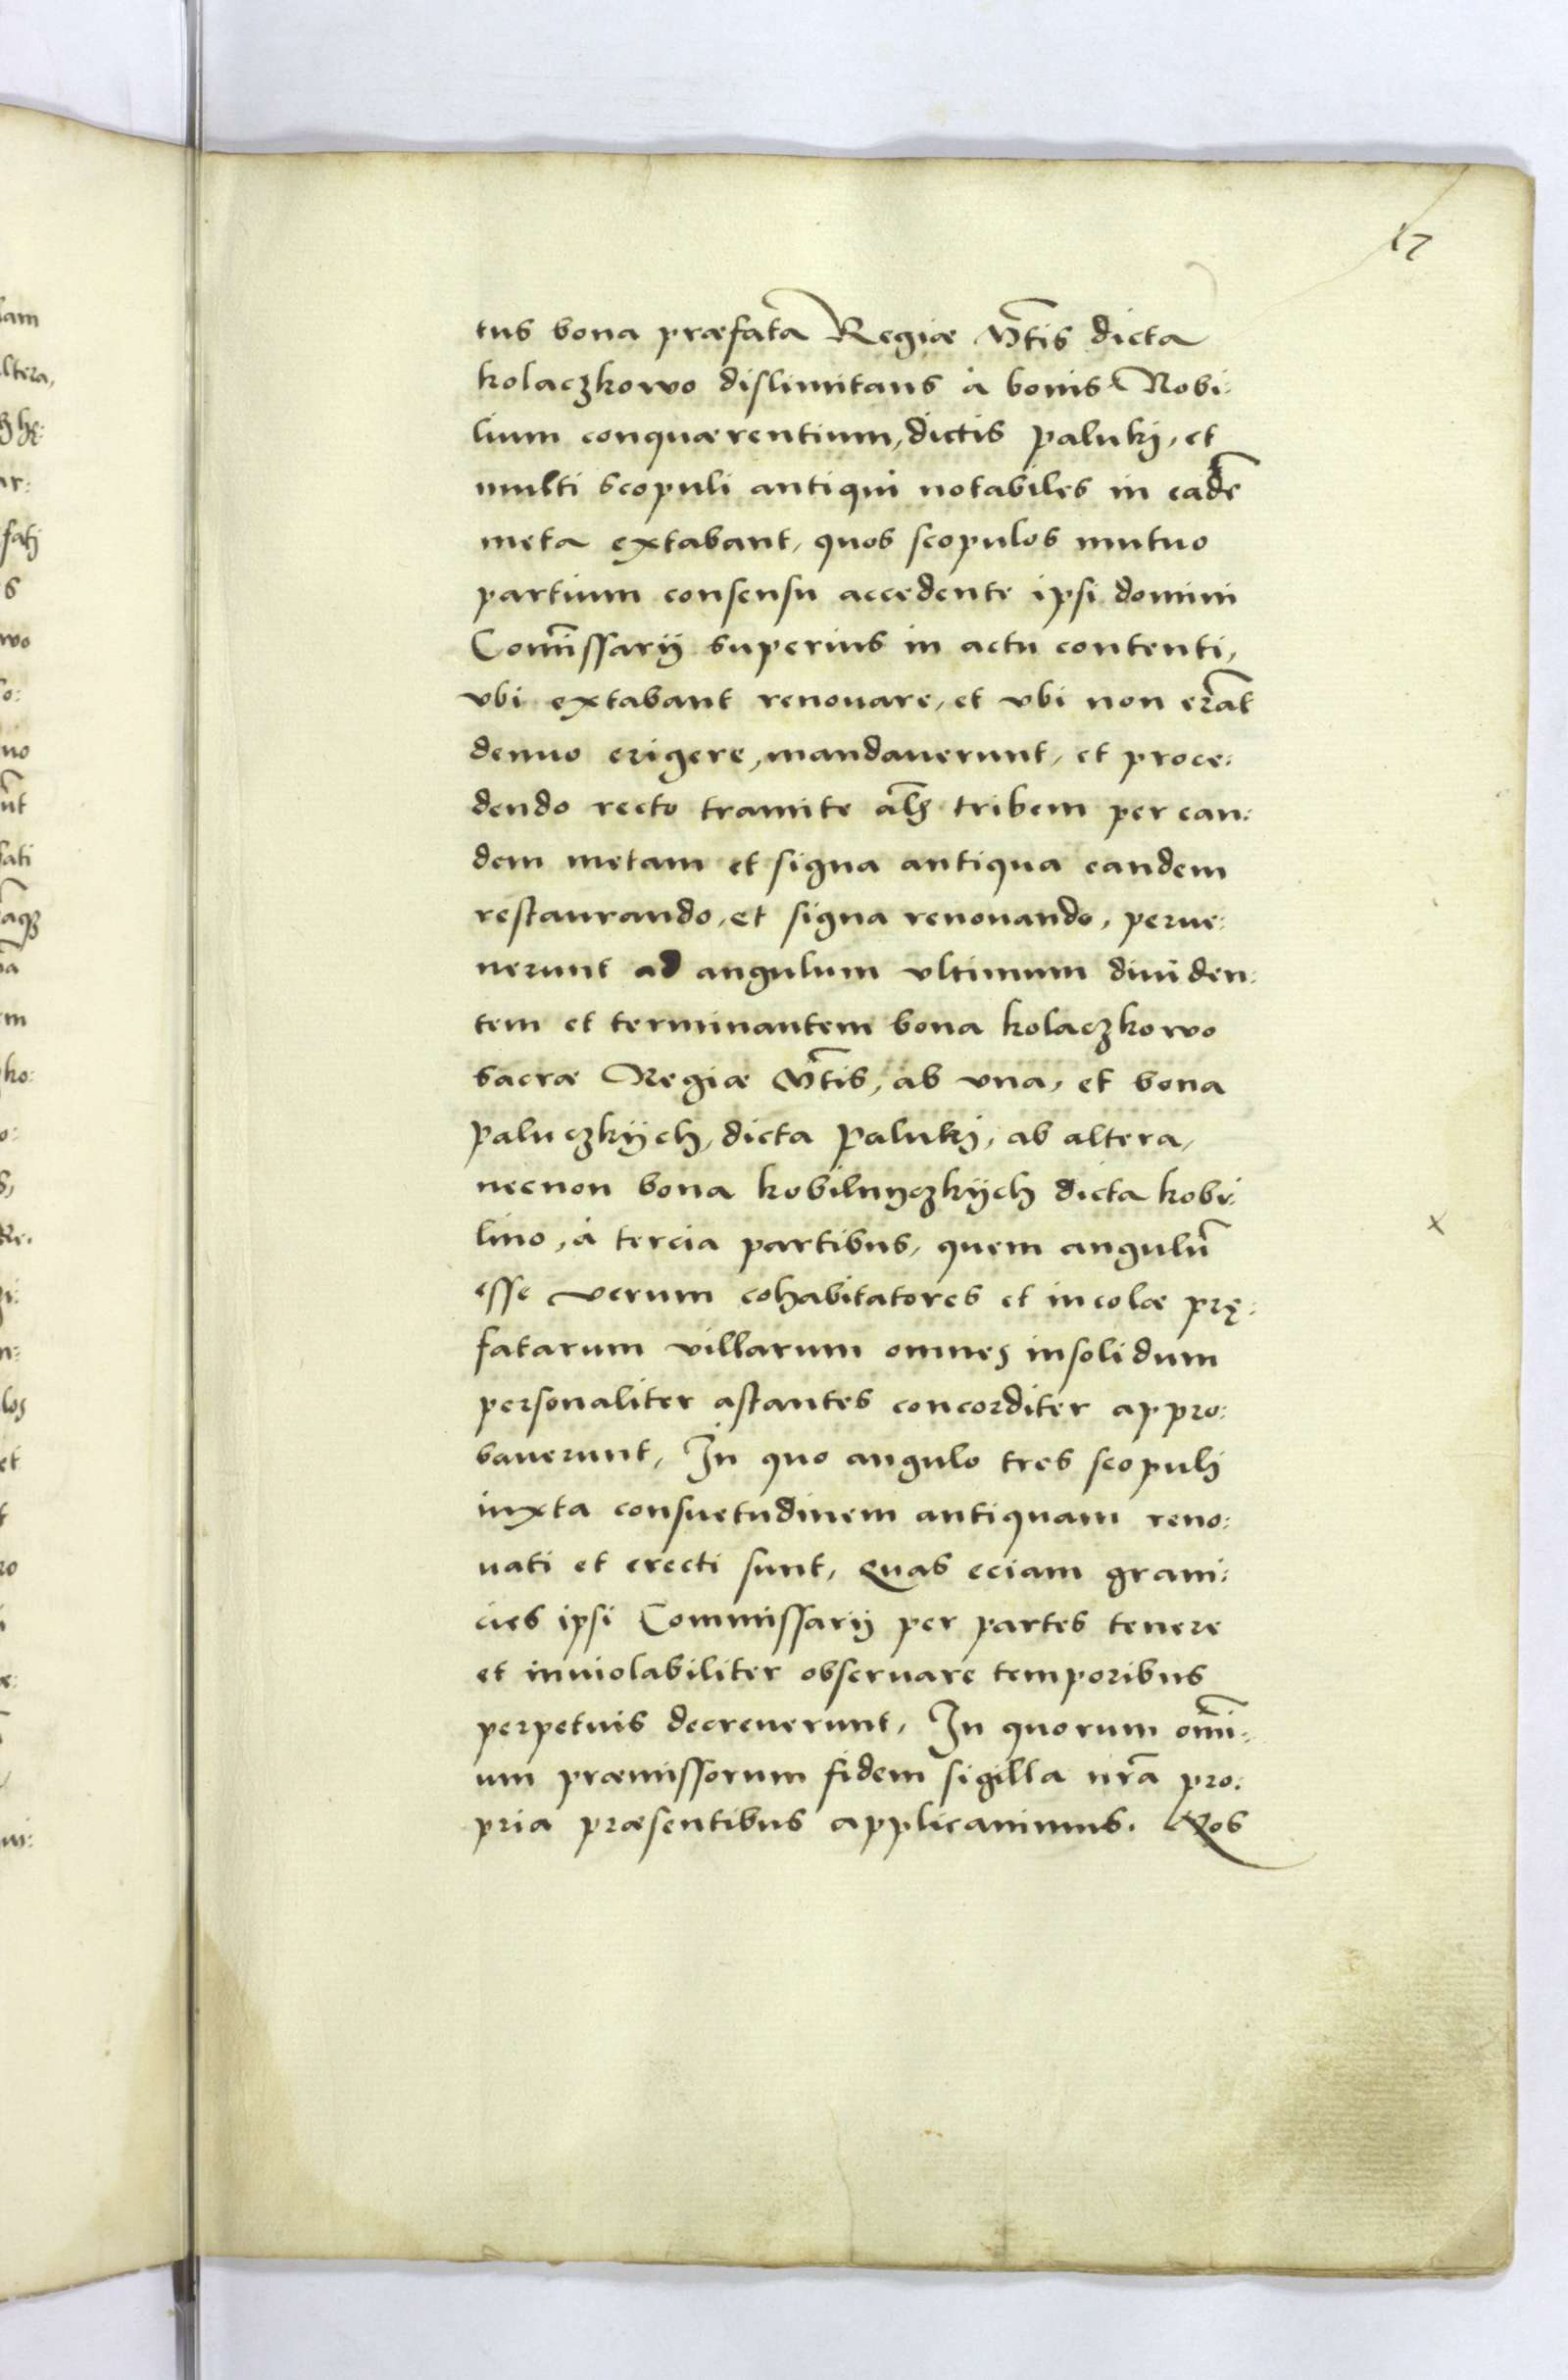 17
tus bona præfata Regiæ M̃tis dicta
kolaczkowo dislimitans à bonis Nobi:
lium conquærentium, dictis paluki, et
multi scopuli antiqui notabiles in eadẽ
meta extabant, quos scopulos mutuo
partium consensu accedente ipsi domini
Com̃issarij superius in actu contenti,
vbi extabant renouare, et vbi non erãt
denuo erigere, mandauerunt, et proce:
dendo recto tramite al̃s tribem per ean:
dem metam et signa antiqua eandem
restaurando, et signa renouando, perue:
nerunt ad angulum vltimum diuiden:
tem et terminantem bona kolaczkowo
sacræ Regiæ M̃tis, ab vna, et bona
paluczkÿch, dicta paluki, ab altera,
necnon bona kobilnyczkÿch dicta kobi:
lino, à tercia partibus, quem angulũ
esse verum cohabitatores et incolæ prę:
fatarum villarum omnes insolidum
personaliter astantes concorditer appro:
bauerunt, In quo angulo tres scopuli
iuxta consuetudinem antiquam reno:
uati et erecti sunt, Quas eciam grani:
cies ipsi Commissarij per partes tenere
et inuiolabiliter obseruare temporibus
perpetuis decreuerunt, In quorum om̃i:
um præmissorum fidem sigilla nr̃a pro:
pria præsentibus applicauimus. Nos
x